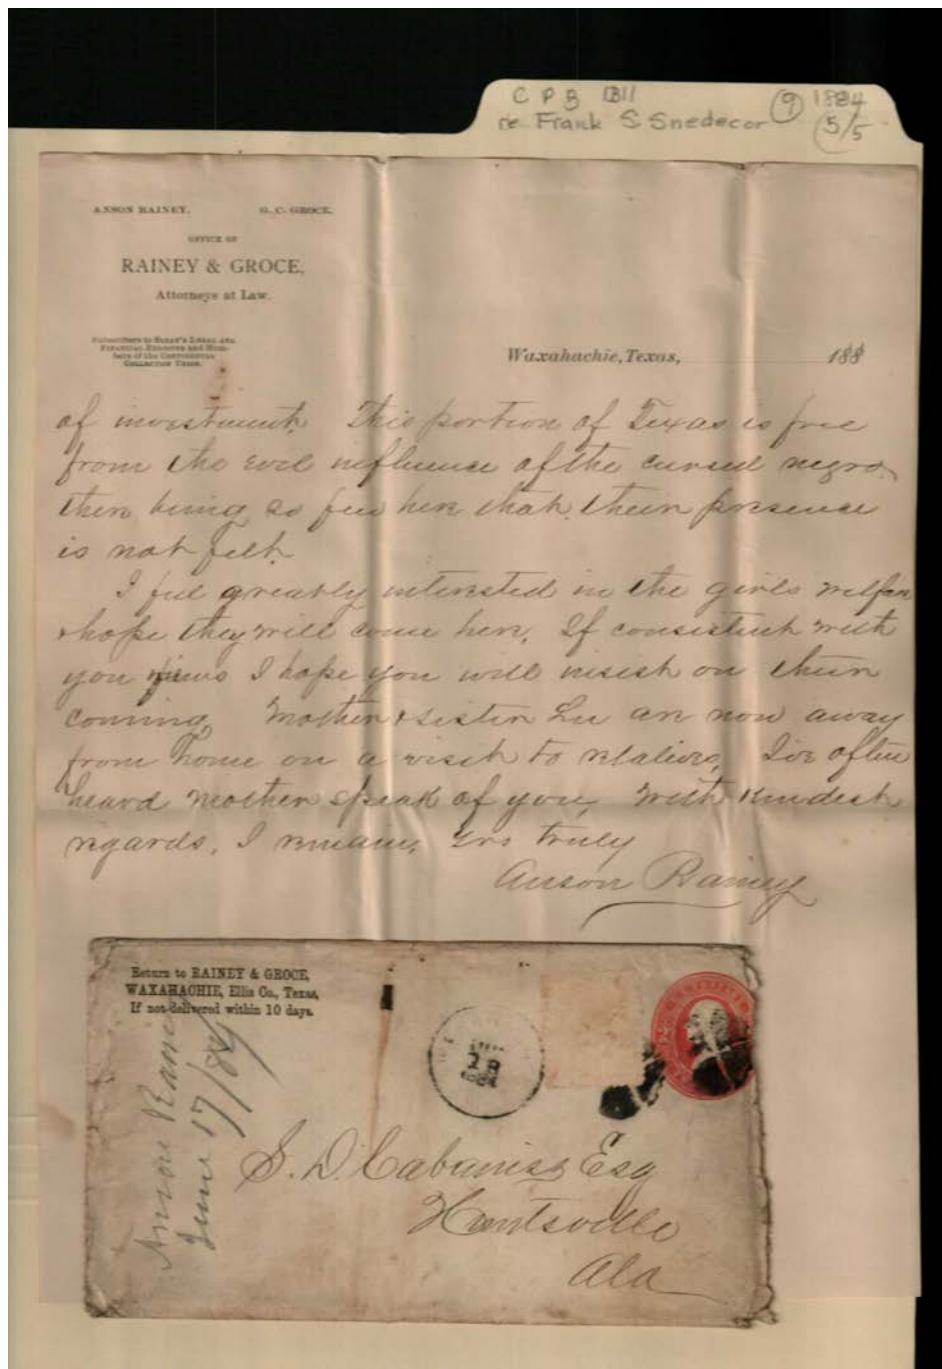 C P B 1311
re Frank S Snedecor
9
1884
5/5
ANSON RAINEY. G. C. GROCE.
OFFICE OF
RAINEY & GROCE,
Attorneys at Law.
Waxahachie, Texas, 188
of investment. This portion of Texas is free
from the evil influence of the cursed negro,
there being so few here that their presence
is not felt.
I feel greatly interested in the girls welfare
& hope they will come here. If consistent with
you views I hope you will insist on their
coming. Mother & sister Lu are now away
from home on a visit to relatives. I've often
heard mother speak of you, With kindest
regards, I remain, Yrs truly
Anson Rainey
Return to RAINEY & GROCE,
WAXAHACHIE, Ellis Co., Texas,
If not delivered within 10 days.
Anson Rainey
June 17/84
S. D. Cabaniss Esq
Huntsville
Ala